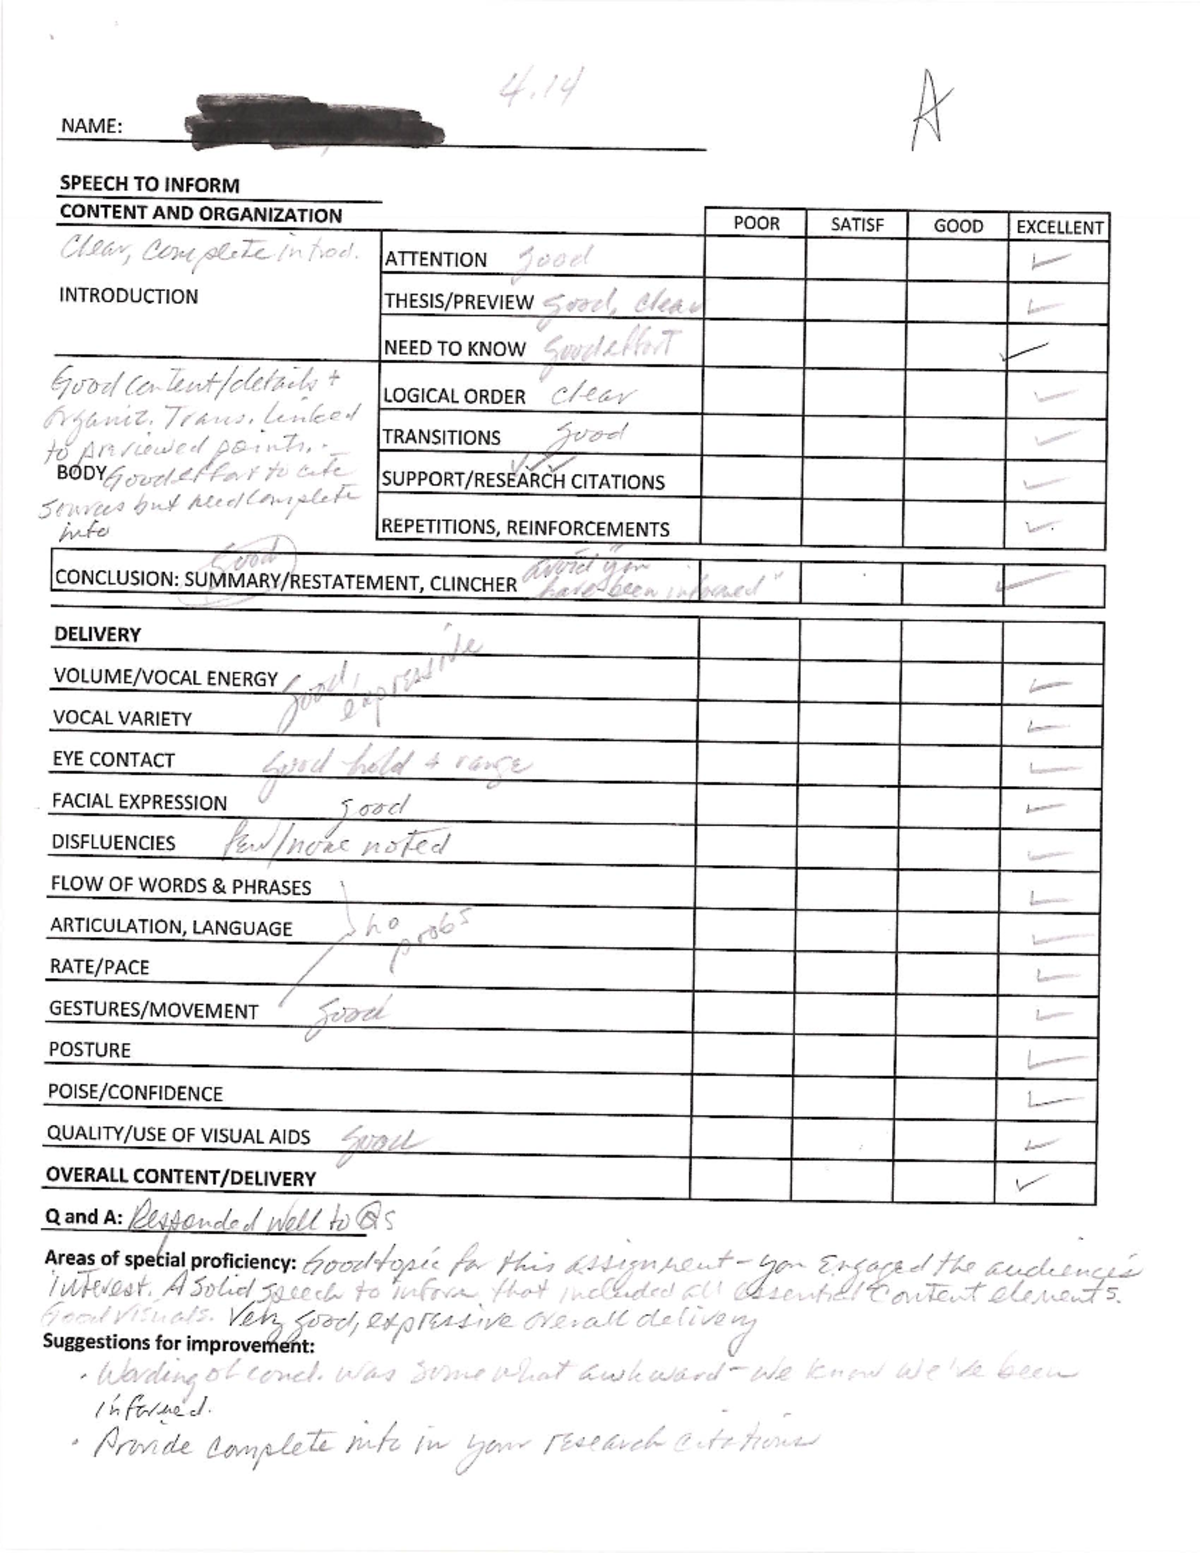 4.14
A
NAME:
SPEECH TO INFORM
CONTENT AND ORGANIZATION
POOR SATISF GOOD EXCELLENT
Clear, complete introd.
INTRODUCTION
ATTENTION good
THESIS/PREVIEW good, clear
NEED TO KNOW Good effort
Good content/details +
organiz. Trans. linked
to previewed points. -
BODY Good effort to cite
sources but need complete
info
LOGICAL ORDER clear
TRANSITIONS good
SUPPORT/RESEARCH CITATIONS
REPETITIONS, REINFORCEMENTS
Good
CONCLUSION: SUMMARY/RESTATEMENT, CLINCHER avoid "you
have been informed"
DELIVERY
VOLUME/VOCAL ENERGY good, expressive
VOCAL VARIETY
EYE CONTACT good hold + range
FACIAL EXPRESSION good
DISFLUENCIES Few/none noted
FLOW OF WORDS & PHRASES
ARTICULATION, LANGUAGE no probs
RATE/PACE
GESTURES/MOVEMENT good
POSTURE
POISE/CONFIDENCE
QUALITY/USE OF VISUAL AIDS Good
OVERALL CONTENT/DELIVERY
Q and A: Responded well to Qs
Areas of special proficiency: Good topic for this assignment - you Engaged the audience's
interest. A solid speech to inform that included all essential content elements.
Good visuals. Very good, expressive overall delivery
Suggestions for improvement:
· Wording of concl. was somewhat awkward - we know we've been
informed.
· Provide complete info in your research citations